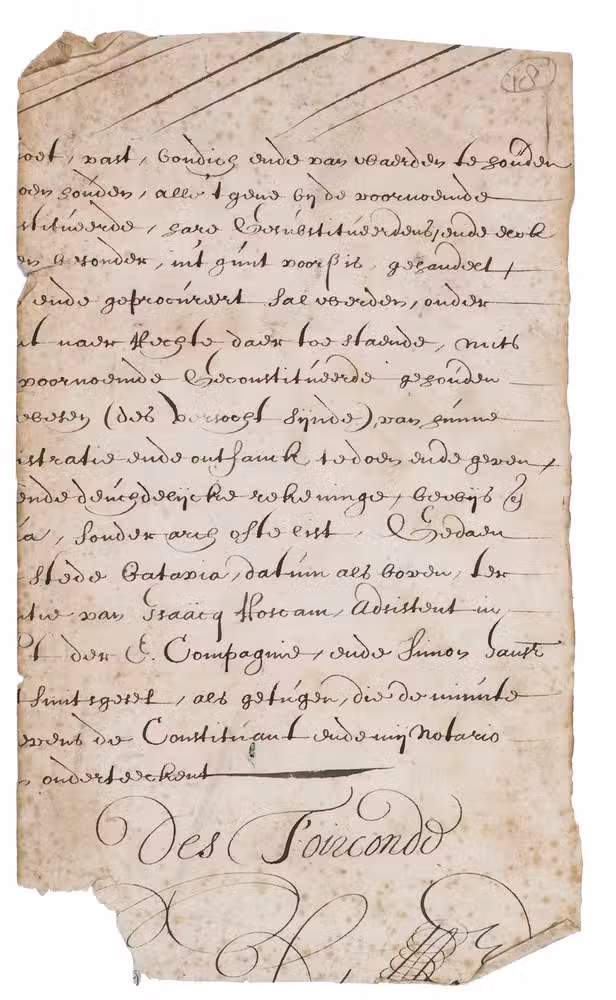 18
oet, vast, bondich ende van waerden te houden
oen houden, alle 't gene bij de voornoemde
stitueerde, hare Gesubstitueerdens, ende elck
en besonder, uit gunt voorß is, gehandelt,
ende geprocureert sal werden, onder
naer Rechte daer toe staende, mits
voornoemde Geconstitueerde gehouden
wesen (des versocht sijnde) van hunne
istratie ende ontfanck te doen ende geven,
ende deuchdelijcke rekeninge, bewijs
a, sonder arch ofte list, Gedaen
stede Batavia, datum als boven, ter
tie van Isaacq Roscam, Adsistent in
t der E. Compagnie, ende Simon
, als getugen, die de minute
evens de Constituant ende mij Notario
onderteeckent
Des Toirconde